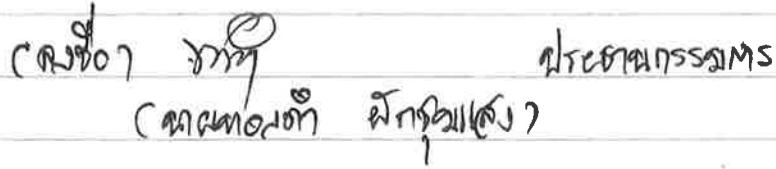 (ลงชื่อ) ประธานกรรมการ
(นายทองคำ ผักชุมแสง)